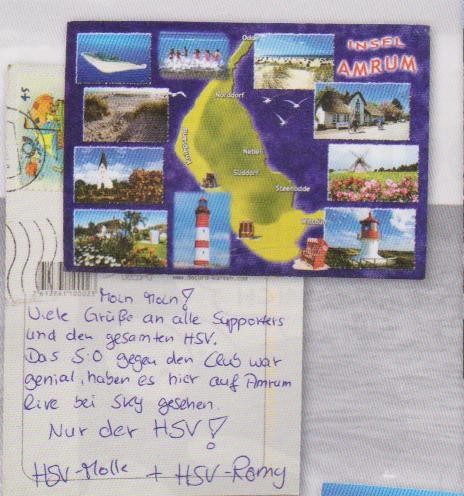 45
INSEL
AMRUM
Norddorf
Nebel
Süddorf
Steenodde
Moin Moin!
Viele Grüße an alle Supporters
und den gesamten HSV.
Das 5:0 gegen den Club war
genial, haben es hier auf Amrum
live bei Sky gesehen.
Nur der HSV!
HSV-Molle + HSV-Romy